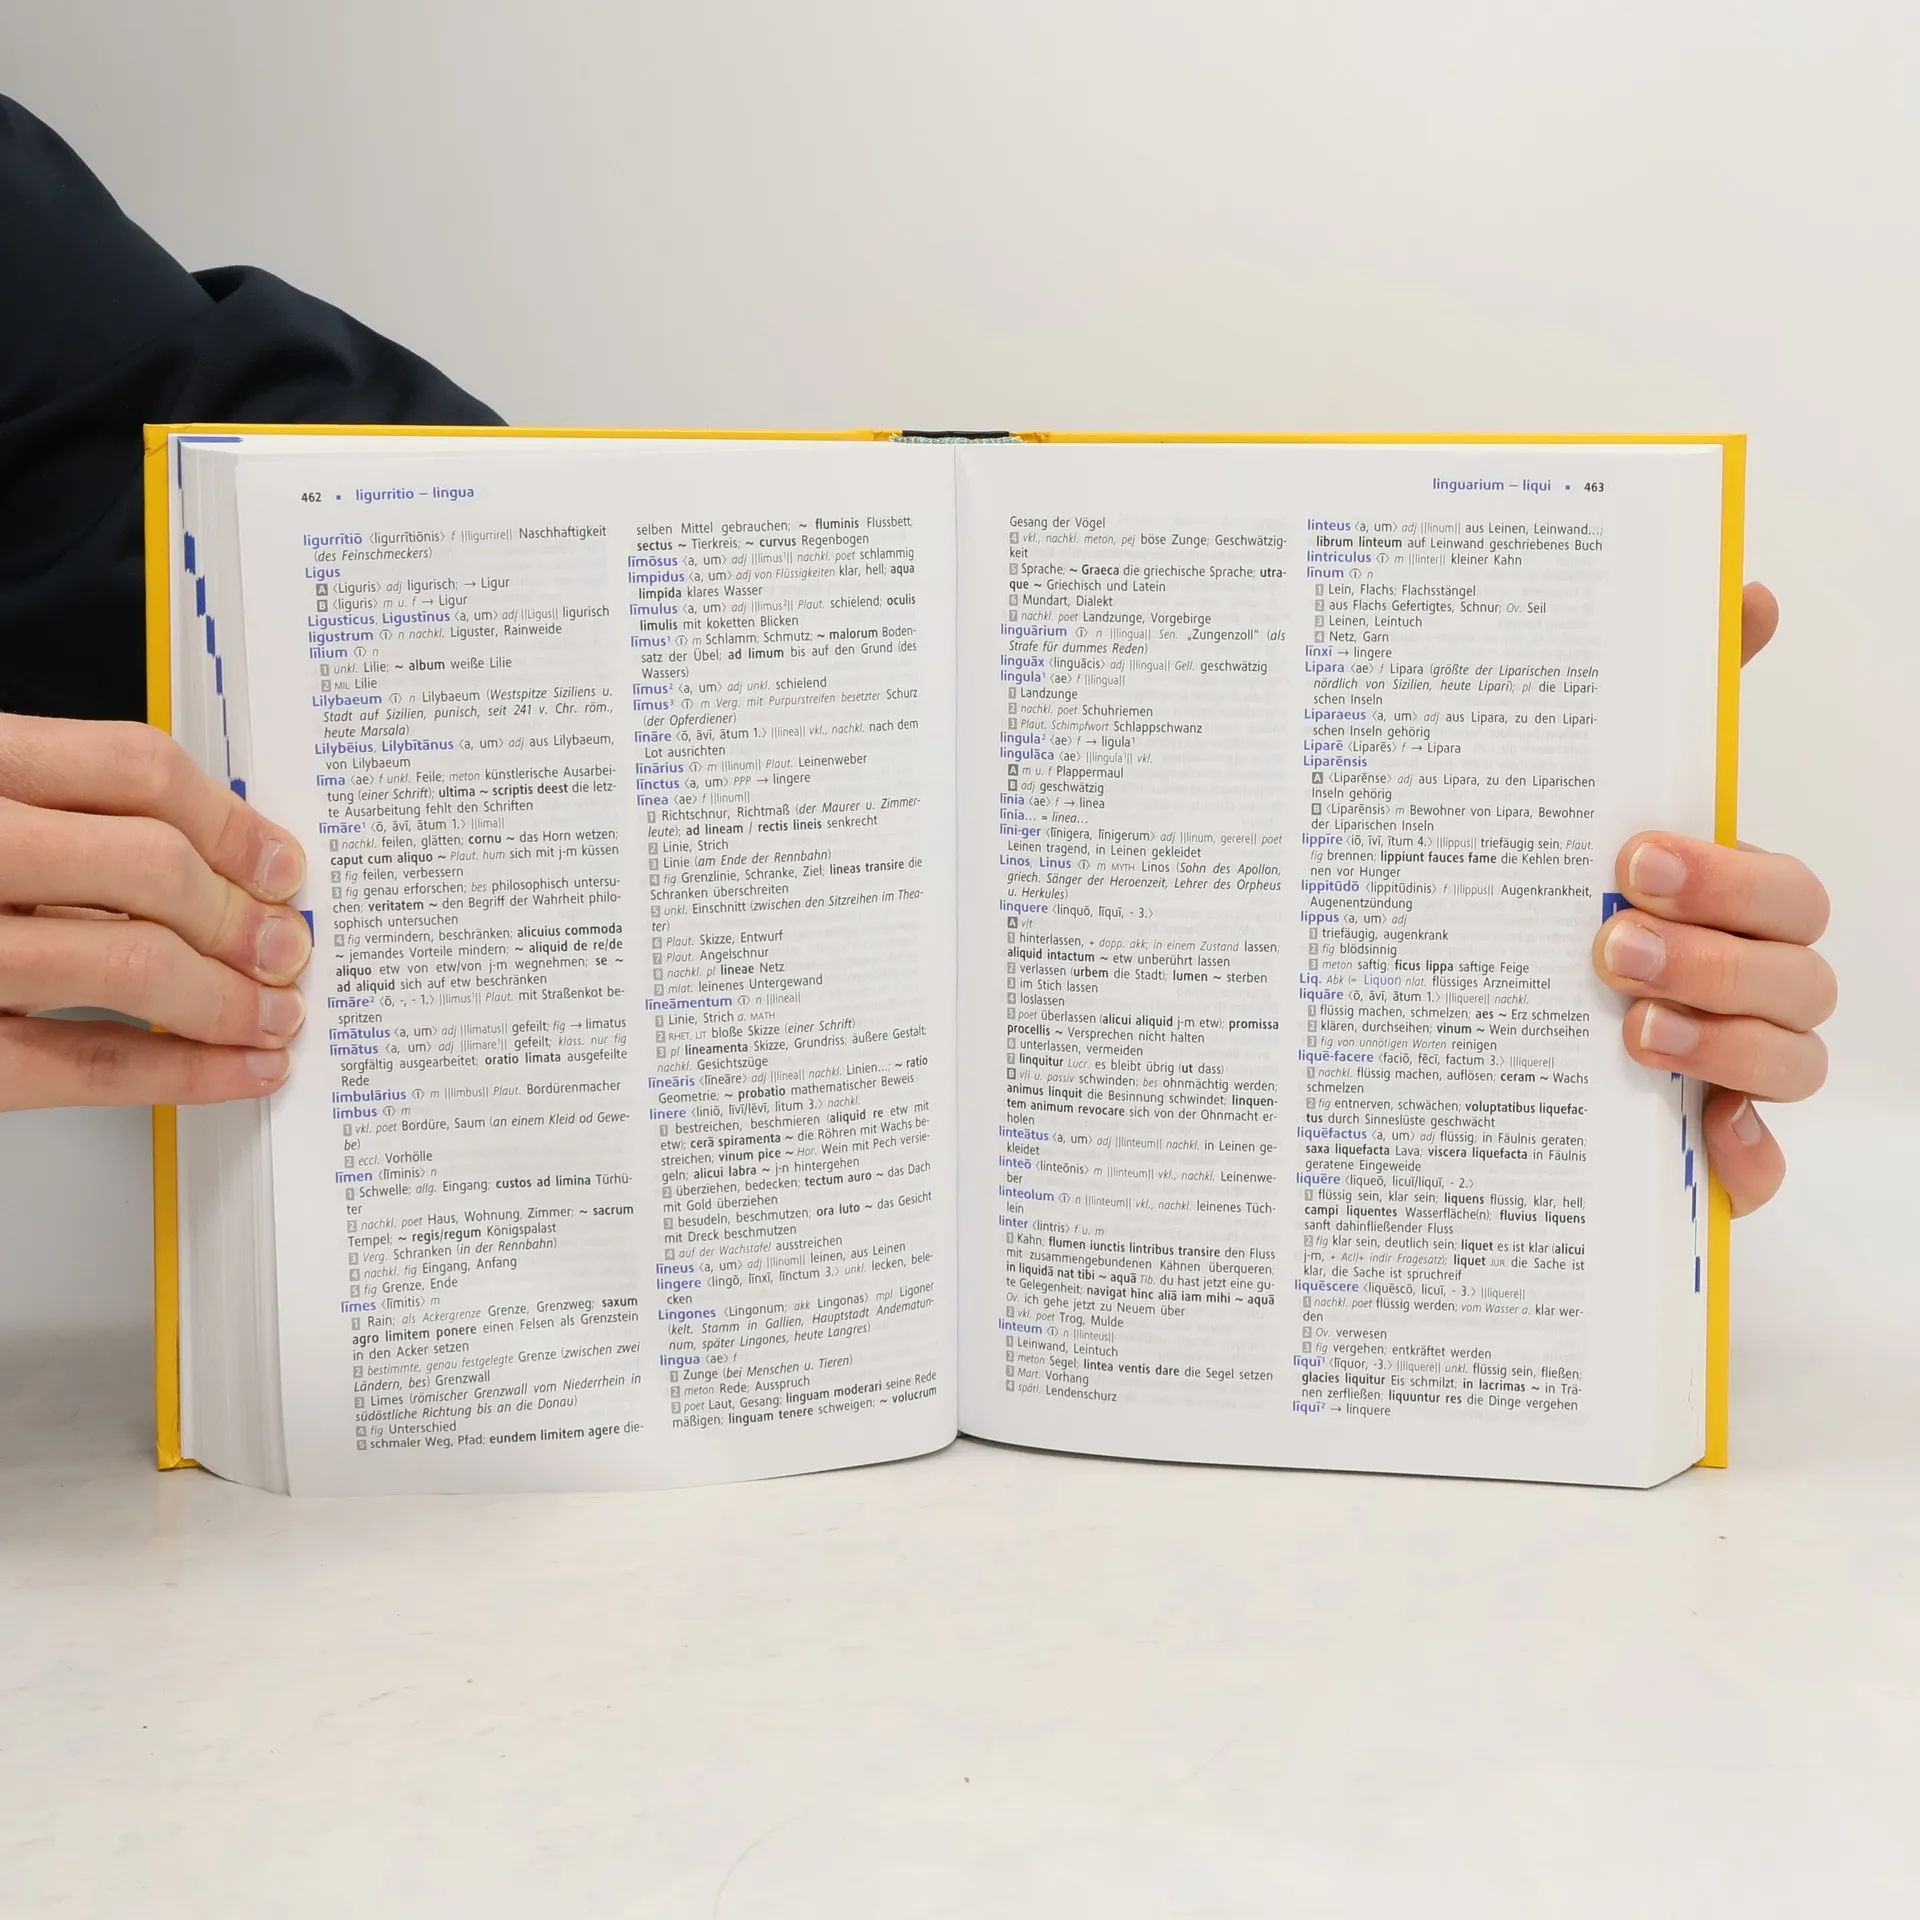 462 ▪ ligurritio – lingua
ligurrītiō ⟨ligurrītiōnis⟩ f ||ligurrire|| Naschhaftigkeit
(des Feinschmeckers)
Ligus
A ⟨Liguris⟩ adj ligurisch; → Ligur
B ⟨liguris⟩ m u. f → Ligur
Ligusticus, Ligustīnus ⟨a, um⟩ adj ||Ligus|| ligurisch
ligustrum ⟨ī⟩ n nachkl. Liguster, Rainweide
līlium ⟨ī⟩ n
1 unkl. Lilie; ~ album weiße Lilie
2 MIL Lilie
Lilybaeum ⟨ī⟩ n Lilybaeum (Westspitze Siziliens u.
Stadt auf Sizilien, punisch, seit 241 v. Chr. röm.,
heute Marsala)
Lilybēius, Lilybītānus ⟨a, um⟩ adj aus Lilybaeum,
von Lilybaeum
līma ⟨ae⟩ f unkl. Feile; meton künstlerische Ausarbei-
tung (einer Schrift); ultima ~ scriptis deest die letz-
te Ausarbeitung fehlt den Schriften
līmāre¹ ⟨ō, āvī, ātum 1.⟩ ||lima||
1 nachkl. feilen, glätten; cornu ~ das Horn wetzen;
caput cum aliquo ~ Plaut. hum sich mit j-m küssen
2 fig feilen, verbessern
3 fig genau erforschen; bes philosophisch untersu-
chen; veritatem ~ den Begriff der Wahrheit philo-
sophisch untersuchen
4 fig vermindern, beschränken; alicuius commoda
~ jemandes Vorteile mindern; ~ aliquid de re/de
aliquo etw von etw/von j-m wegnehmen; se ~
ad aliquid sich auf etw beschränken
līmāre² ⟨ō, -, - 1.⟩ ||limus¹|| Plaut. mit Straßenkot be-
spritzen
līmātulus ⟨a, um⟩ adj ||limatus|| gefeilt; fig → limatus
līmātus ⟨a, um⟩ adj ||limare¹|| gefeilt; klass. nur fig
sorgfältig ausgearbeitet; oratio limata ausgefeilte
Rede
limbulārius ⟨ī⟩ m ||limbus|| Plaut. Bordürenmacher
limbus ⟨ī⟩ m
1 vkl. poet Bordüre, Saum (an einem Kleid od Gewe-
be)
2 eccl. Vorhölle
līmen ⟨līminis⟩ n
1 Schwelle; allg. Eingang; custos ad limina Türhü-
ter
2 nachkl. poet Haus, Wohnung, Zimmer; ~ sacrum
Tempel; ~ regis/regum Königspalast
3 Verg. Schranken (in der Rennbahn)
4 nachkl. fig Eingang, Anfang
5 fig Grenze, Ende
līmes ⟨līmitis⟩ m
1 Rain; als Ackergrenze Grenze, Grenzweg; saxum
agro limitem ponere einen Felsen als Grenzstein
in den Acker setzen
2 bestimmte, genau festgelegte Grenze (zwischen zwei
Ländern, bes) Grenzwall
3 Limes (römischer Grenzwall vom Niederrhein in
südöstliche Richtung bis an die Donau)
4 fig Unterschied
5 schmaler Weg, Pfad; eundem limitem agere die-
selben Mittel gebrauchen; ~ fluminis Flussbett;
sectus ~ Tierkreis; ~ curvus Regenbogen
līmōsus ⟨a, um⟩ adj ||limus¹|| nachkl. poet schlammig
limpidus ⟨a, um⟩ adj von Flüssigkeiten klar, hell; aqua
limpida klares Wasser
līmulus ⟨a, um⟩ adj ||limus²|| Plaut. schielend; oculis
limulis mit koketten Blicken
līmus¹ ⟨ī⟩ m Schlamm; Schmutz; ~ malorum Boden-
satz der Übel; ad limum bis auf den Grund (des
Wassers)
līmus² ⟨a, um⟩ adj unkl. schielend
līmus³ ⟨ī⟩ m Verg. mit Purpurstreifen besetzter Schurz
(der Opferdiener)
līnāre ⟨ō, āvī, ātum 1.⟩ ||linea|| vkl., nachkl. nach dem
Lot ausrichten
līnārius ⟨ī⟩ m ||linum|| Plaut. Leinenweber
līnctus ⟨a, um⟩ PPP → lingere
līnea ⟨ae⟩ f ||linum||
1 Richtschnur, Richtmaß (der Maurer u. Zimmer-
leute); ad lineam / rectis lineis senkrecht
2 Linie, Strich
3 Linie (am Ende der Rennbahn)
4 fig Grenzlinie, Schranke, Ziel; lineas transire die
Schranken überschreiten
5 unkl. Einschnitt (zwischen den Sitzreihen im Thea-
ter)
6 Plaut. Skizze, Entwurf
7 Plaut. Angelschnur
8 nachkl. pl lineae Netz
9 mlat. leinenes Untergewand
līneāmentum ⟨ī⟩ n ||linea||
1 Linie, Strich a. MATH
2 RHET, LIT bloße Skizze (einer Schrift)
3 pl lineamenta Skizze, Grundriss; äußere Gestalt;
nachkl. Gesichtszüge
līneāris ⟨līneāre⟩ adj ||linea|| nachkl. Linien...; ~ ratio
Geometrie; ~ probatio mathematischer Beweis
linere ⟨liniō, līvī/lēvī, litum 3.⟩ nachkl.
1 bestreichen, beschmieren (aliquid re etw mit
etw); cerā spiramenta ~ die Röhren mit Wachs be-
streichen; vinum pice ~ Hor. Wein mit Pech versie-
geln; alicui labra ~ j-n hintergehen
2 überziehen, bedecken; tectum auro ~ das Dach
mit Gold überziehen
3 besudeln, beschmutzen; ora luto ~ das Gesicht
mit Dreck beschmutzen
4 auf der Wachstafel ausstreichen
līneus ⟨a, um⟩ adj ||linum|| leinen, aus Leinen
lingere ⟨lingō, līnxī, līnctum 3.⟩ unkl. lecken, bele-
cken
Lingones ⟨Lingonum; akk Lingonas⟩ mpl Ligoner
(kelt. Stamm in Gallien, Hauptstadt Andematun-
num, später Lingones, heute Langres)
lingua ⟨ae⟩ f
1 Zunge (bei Menschen u. Tieren)
2 meton Rede; Ausspruch
3 poet Laut, Gesang; linguam moderari seine Rede
mäßigen; linguam tenere schweigen; ~ volucrum
linguarium – liqui ▪ 463
Gesang der Vögel
4 vkl., nachkl. meton, pej böse Zunge; Geschwätzig-
keit
5 Sprache; ~ Graeca die griechische Sprache; utra-
que ~ Griechisch und Latein
6 Mundart, Dialekt
7 nachkl. poet Landzunge, Vorgebirge
linguārium ⟨ī⟩ n ||lingua|| Sen. „Zungenzoll“ (als
Strafe für dummes Reden)
linguāx ⟨linguācis⟩ adj ||lingua|| Gell. geschwätzig
lingula¹ ⟨ae⟩ f ||lingua||
1 Landzunge
2 nachkl. poet Schuhriemen
3 Plaut. Schimpfwort Schlappschwanz
lingula² ⟨ae⟩ f → ligula¹
lingulāca ⟨ae⟩ ||lingula¹|| vkl.
A m u. f Plappermaul
B adj geschwätzig
līnia ⟨ae⟩ f → linea
līnia... = linea...
līni-ger ⟨līnigera, līnigerum⟩ adj ||linum, gerere|| poet
Leinen tragend, in Leinen gekleidet
Linos, Linus ⟨ī⟩ m MYTH Linos (Sohn des Apollon,
griech. Sänger der Heroenzeit, Lehrer des Orpheus
u. Herkules)
linquere ⟨linquō, līquī, - 3.⟩
A v/t
1 hinterlassen, + dopp. akk; in einem Zustand lassen;
aliquid intactum ~ etw unberührt lassen
2 verlassen (urbem die Stadt); lumen ~ sterben
3 im Stich lassen
4 loslassen
5 poet überlassen (alicui aliquid j-m etw); promissa
procellis ~ Versprechen nicht halten
6 unterlassen, vermeiden
7 linquitur Lucr. es bleibt übrig (ut dass)
B v/i u. passiv schwinden; bes ohnmächtig werden;
animus linquit die Besinnung schwindet; linquen-
tem animum revocare sich von der Ohnmacht er-
holen
linteātus ⟨a, um⟩ adj ||linteum|| nachkl. in Leinen ge-
kleidet
linteō ⟨linteōnis⟩ m ||linteum|| vkl., nachkl. Leinenwe-
ber
linteolum ⟨ī⟩ n ||linteum|| vkl., nachkl. leinenes Tüch-
lein
linter ⟨lintris⟩ f u. m
1 Kahn; flumen iunctis lintribus transire den Fluss
mit zusammengebundenen Kähnen überqueren;
in liquidā nat tibi ~ aquā Tib. du hast jetzt eine gu-
te Gelegenheit; navigat hinc aliā iam mihi ~ aquā
Ov. ich gehe jetzt zu Neuem über
2 vkl. poet Trog, Mulde
linteum ⟨ī⟩ n ||linteus||
1 Leinwand, Leintuch
2 meton Segel; lintea ventis dare die Segel setzen
3 Mart. Vorhang
4 spätl. Lendenschurz
linteus ⟨a, um⟩ adj ||linum|| aus Leinen, Leinwand...;
librum linteum auf Leinwand geschriebenes Buch
lintriculus ⟨ī⟩ m ||linter|| kleiner Kahn
līnum ⟨ī⟩ n
1 Lein, Flachs; Flachsstängel
2 aus Flachs Gefertigtes, Schnur; Ov. Seil
3 Leinen, Leintuch
4 Netz, Garn
līnxī → lingere
Lipara ⟨ae⟩ f Lipara (größte der Liparischen Inseln
nördlich von Sizilien, heute Lipari); pl die Lipari-
schen Inseln
Liparaeus ⟨a, um⟩ adj aus Lipara, zu den Lipari-
schen Inseln gehörig
Liparē ⟨Liparēs⟩ f → Lipara
Liparēnsis
A ⟨Liparēnse⟩ adj aus Lipara, zu den Liparischen
Inseln gehörig
B ⟨Liparēnsis⟩ m Bewohner von Lipara, Bewohner
der Liparischen Inseln
lippīre ⟨iō, īvī, ītum 4.⟩ ||lippus|| triefäugig sein; Plaut.
fig brennen; lippiunt fauces fame die Kehlen bren-
nen vor Hunger
lippitūdō ⟨lippitūdinis⟩ f ||lippus|| Augenkrankheit,
Augenentzündung
lippus ⟨a, um⟩ adj
1 triefäugig, augenkrank
2 fig blödsinnig
3 meton saftig; ficus lippa saftige Feige
Liq. Abk (= Liquor) nlat. flüssiges Arzneimittel
liquāre ⟨ō, āvī, ātum 1.⟩ ||liquere|| nachkl.
1 flüssig machen, schmelzen; aes ~ Erz schmelzen
2 klären, durchseihen; vinum ~ Wein durchseihen
3 fig von unnötigen Worten reinigen
liquē-facere ⟨faciō, fēcī, factum 3.⟩ ||liquere||
1 nachkl. flüssig machen, auflösen; ceram ~ Wachs
schmelzen
2 fig entnerven, schwächen; voluptatibus liquefac-
tus durch Sinneslüste geschwächt
liquēfactus ⟨a, um⟩ adj flüssig; in Fäulnis geraten;
saxa liquefacta Lava; viscera liquefacta in Fäulnis
geratene Eingeweide
liquēre ⟨liqueō, licuī/liquī, - 2.⟩
1 flüssig sein, klar sein; liquens flüssig, klar, hell;
campi liquentes Wasserfläche(n); fluvius liquens
sanft dahinfließender Fluss
2 fig klar sein, deutlich sein; liquet es ist klar (alicui
j-m, + AcI/+ indir Fragesatz); liquet JUR die Sache ist
klar, die Sache ist spruchreif
liquēscere ⟨liquēscō, licuī, - 3.⟩ ||liquere||
1 nachkl. poet flüssig werden; vom Wasser a. klar wer-
den
2 Ov. verwesen
3 fig vergehen; entkräftet werden
līquī¹ ⟨līquor, -3.⟩ ||liquere|| unkl. flüssig sein, fließen;
glacies liquitur Eis schmilzt; in lacrimas ~ in Trä-
nen zerfließen; liquuntur res die Dinge vergehen
līquī² → linquere